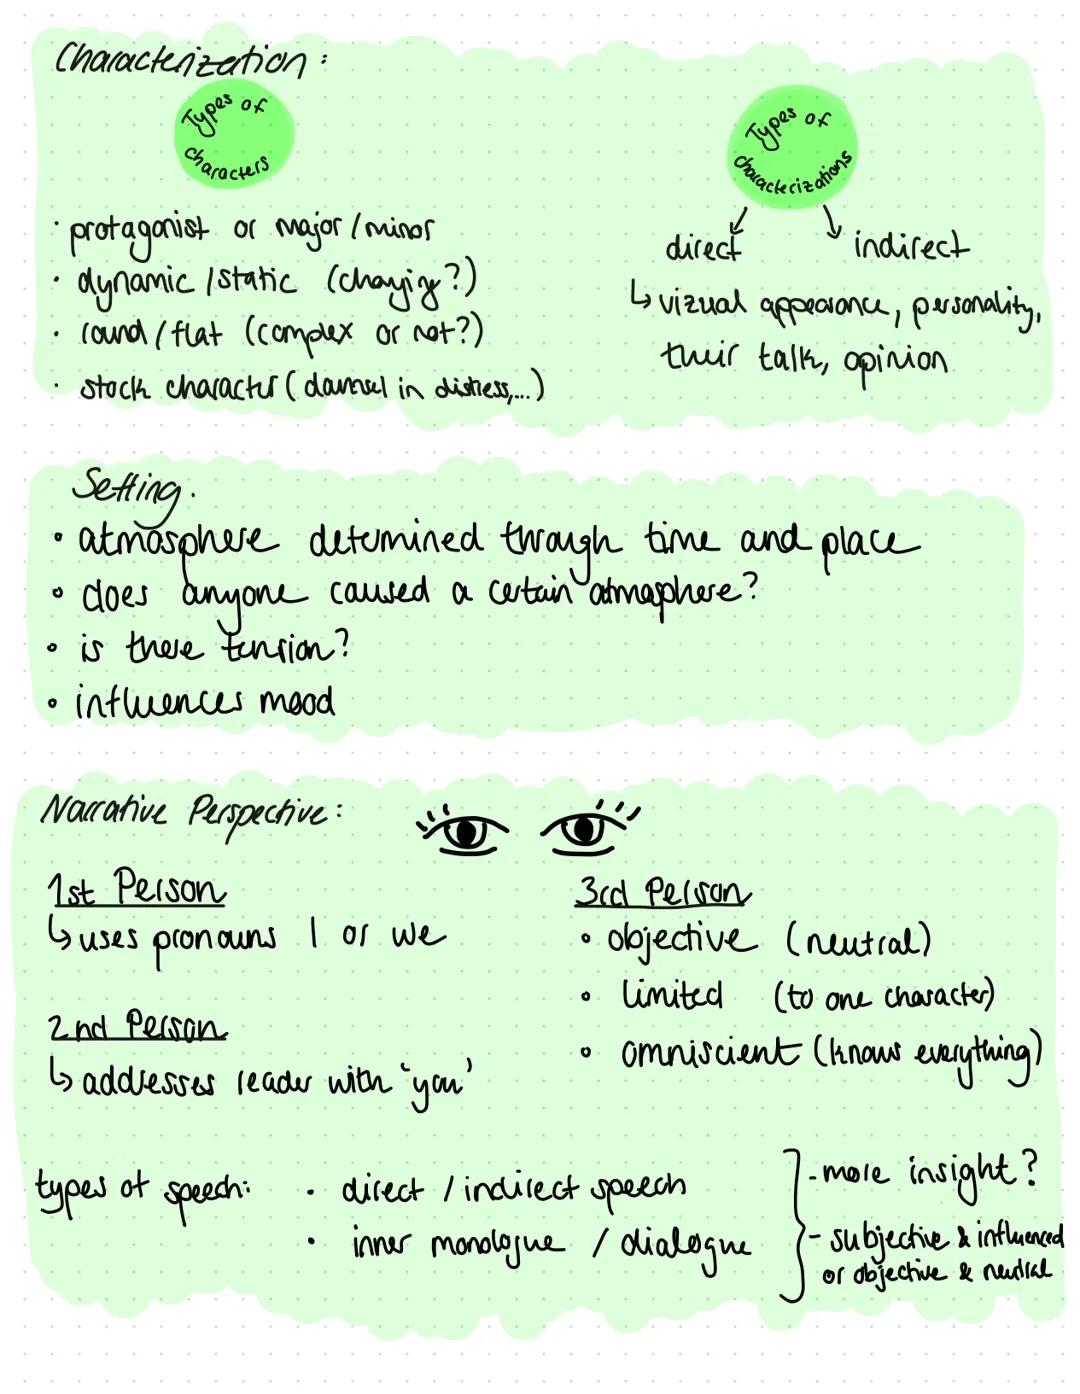 Characterization:
Types of
characters
· protagonist or major / minor
· dynamic / static (changing?)
· round / flat (complex or not?)
· stock character (damsel in distress,...)
Types of
characterizations
direct
indirect
↳ vizual appearance, personality,
their talk, opinion
Setting.
• atmosphere determined through time and place
• does anyone caused a certain atmosphere?
• is there tension?
• influences mood
Narrative Perspective:
1st Person
↳ uses pronouns I or we
2nd Person
↳ addresses reader with 'you'
3rd Person
• objective (neutral)
• limited (to one character)
• omniscient (knows everything)
types of speech:
· direct / indirect speech
· inner monologue / dialogue
- more insight?
- subjective & influenced
or objective & neutral